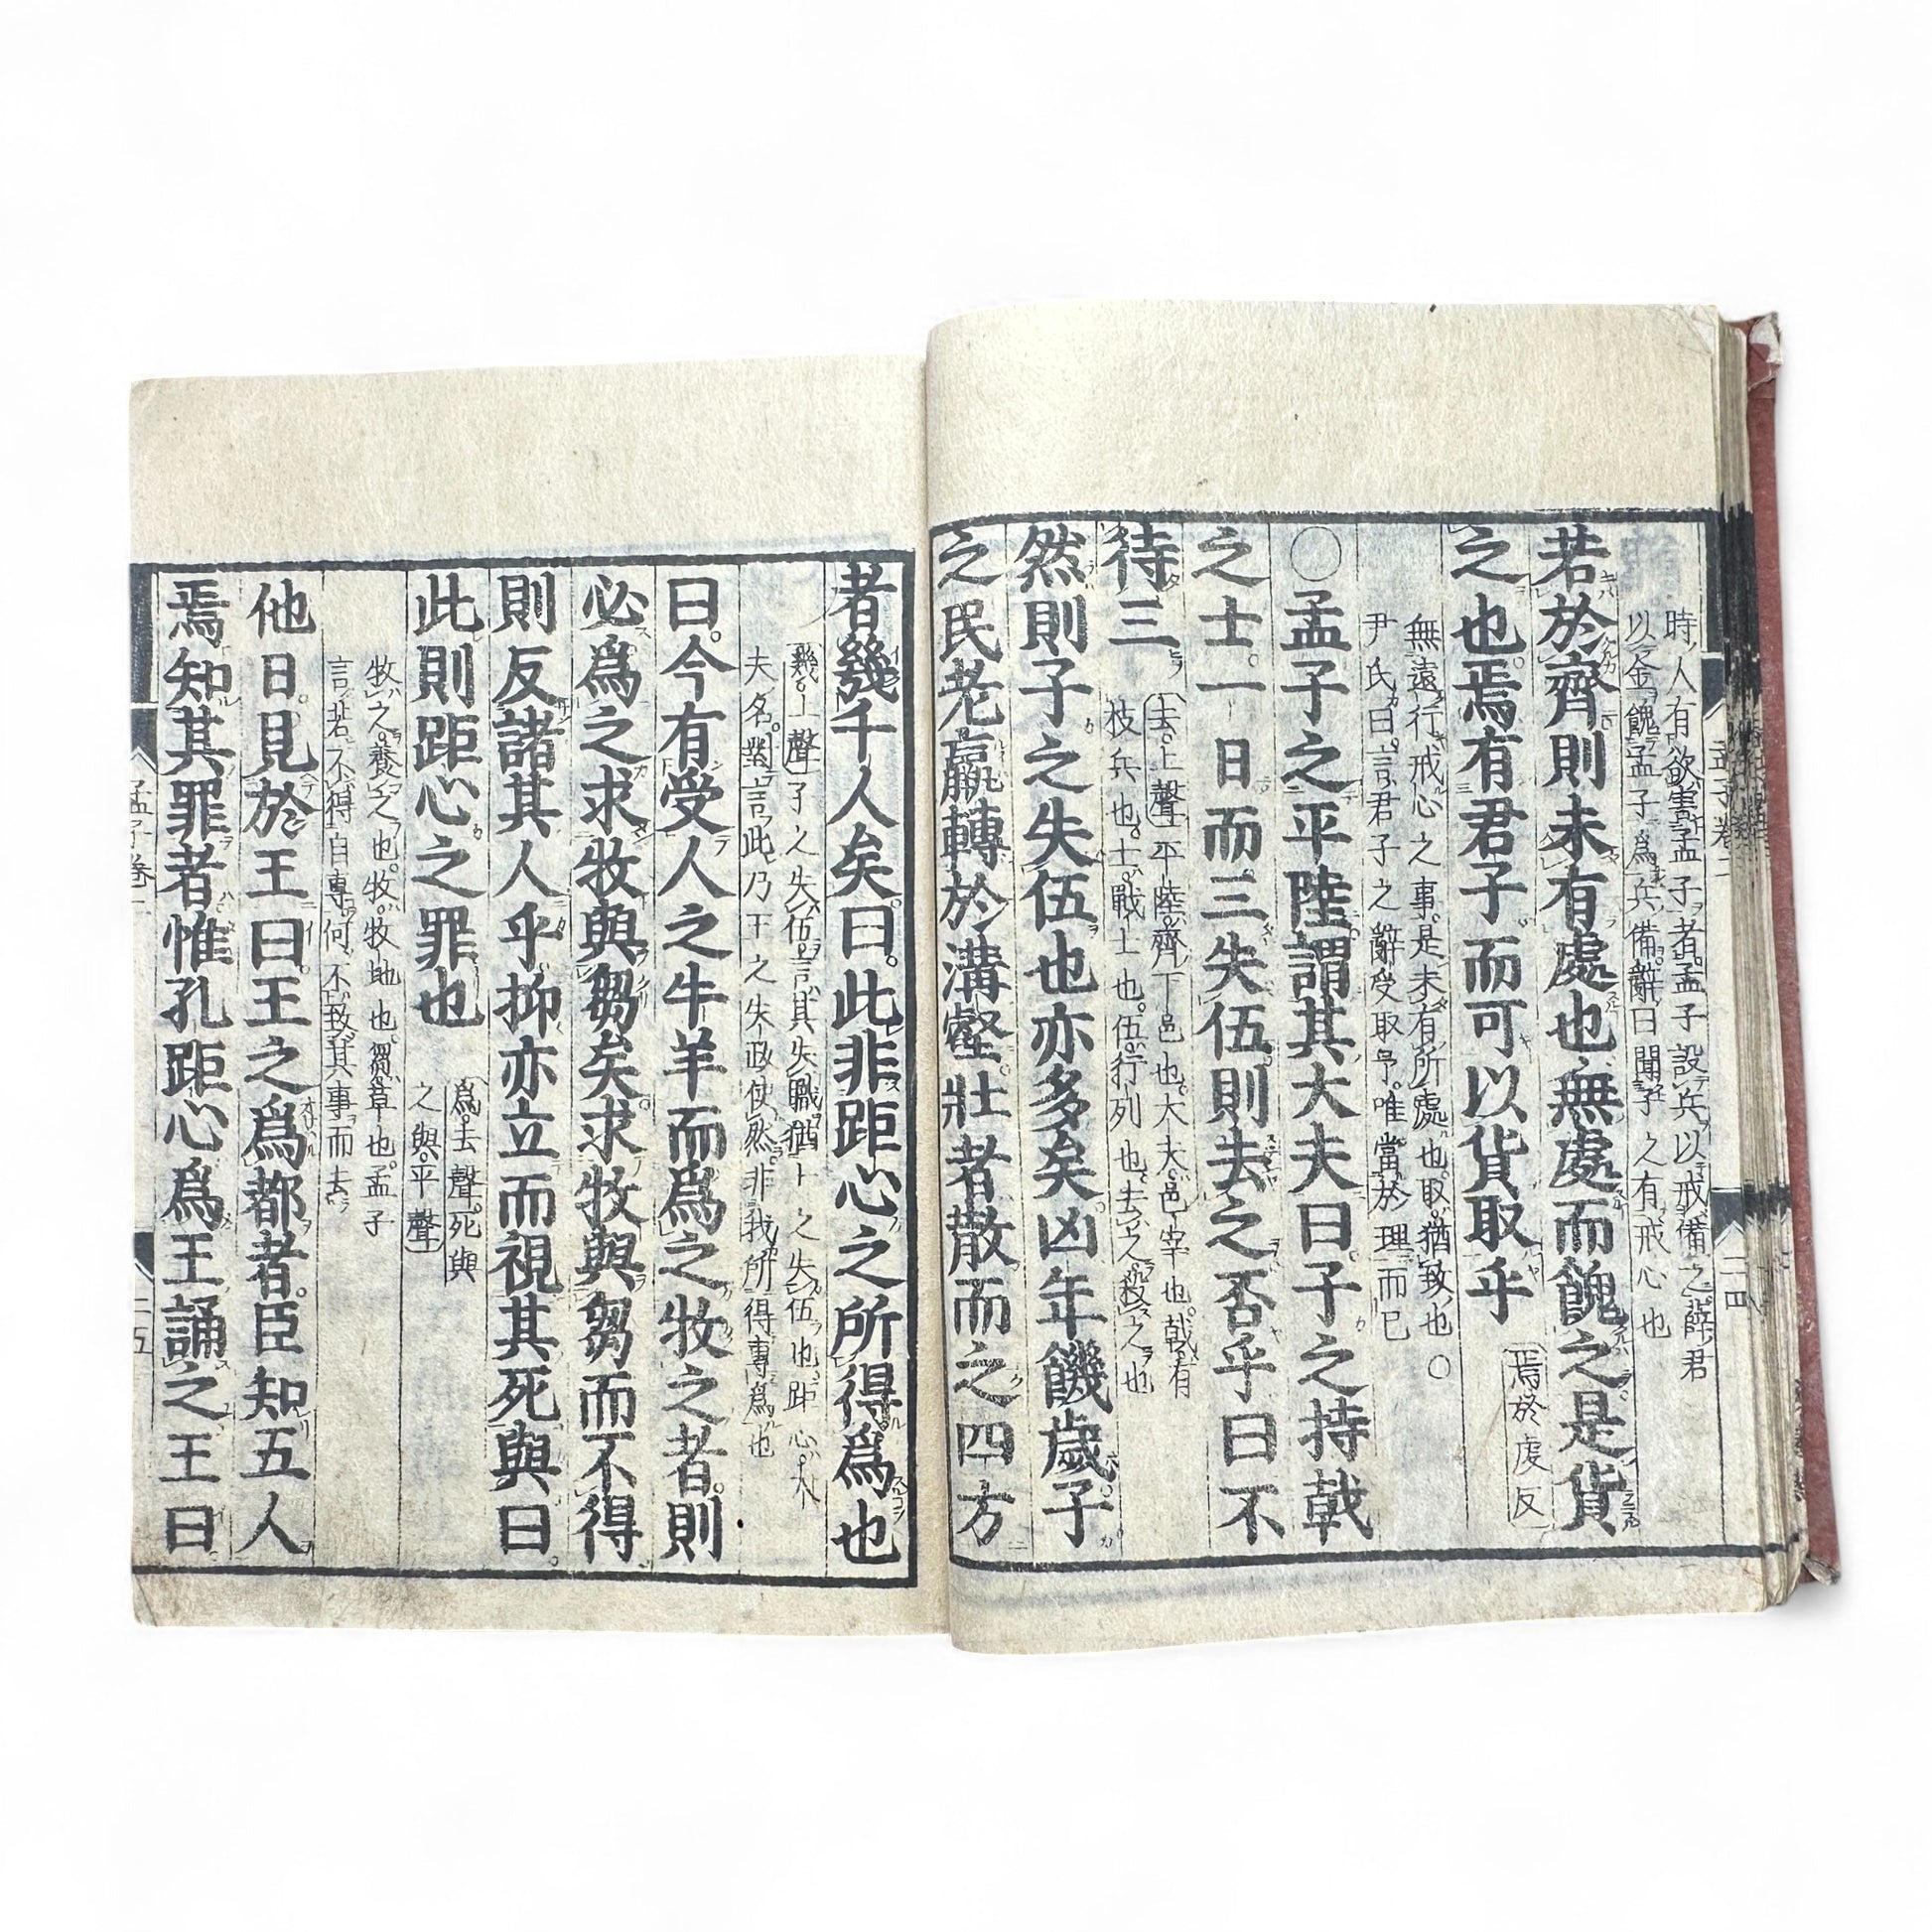 時人有欲害孟子者孟子設兵以戒備之薛君
以金餽孟子爲兵備辭曰聞子之有戒心也
若於齊則未有處也無處而餽之是貨
之也焉有君子而可以貨取乎
焉於虔反
無遠行戒心之事是未有所處也取猶致也○
尹氏曰言君子之辭受取予唯當於理而已
○孟子之平陸謂其大夫曰子之持戟
之士一日而三失伍則去之否乎曰不
待三
去上聲平陸齊下邑也大夫邑宰也戟有
枝兵也士戰士也伍行列也去之殺之也
然則子之失伍也亦多矣凶年饑歲子
之民老羸轉於溝壑壯者散而之四方
者幾千人矣曰此非距心之所得爲也
幾上聲子之失伍言其失職猶士之失伍也距心大
夫名對言此乃王之失政使然非我所得專爲也
曰今有受人之牛羊而爲之牧之者則
必爲之求牧與芻矣求牧與芻而不得
則反諸其人乎抑亦立而視其死與曰
此則距心之罪也
爲去聲死與
之與平聲
牧之養之也牧牧地也芻草也孟子
言若不得自專何不致其事而去
他日見於王曰王之爲都者臣知五人
焉知其罪者惟孔距心爲王誦之王曰
孟子卷二
二四
孟子卷二
二五